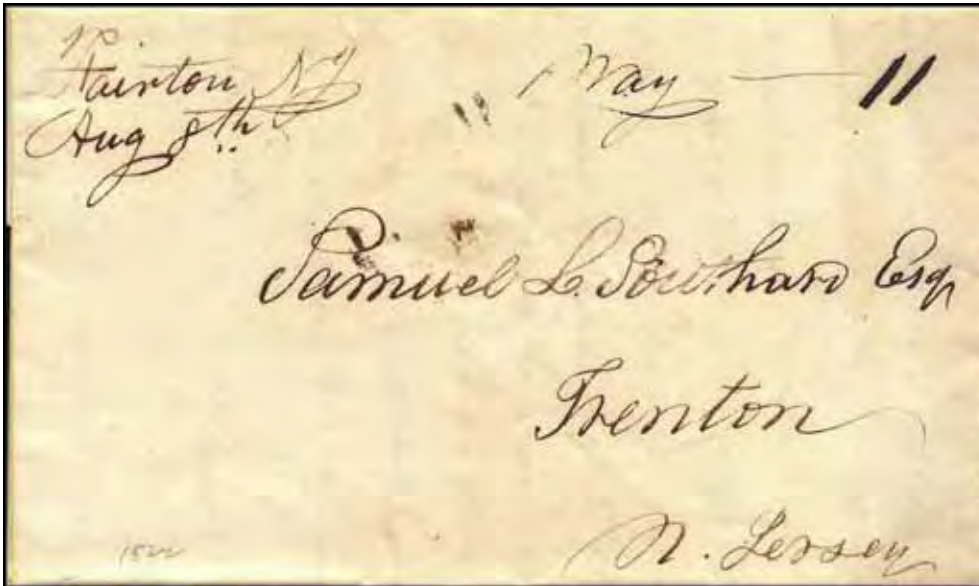 Fairton NJ
Aug 8th
Way — 11
Samuel L. Southard Esqr
Trenton
N. Jersey
1822